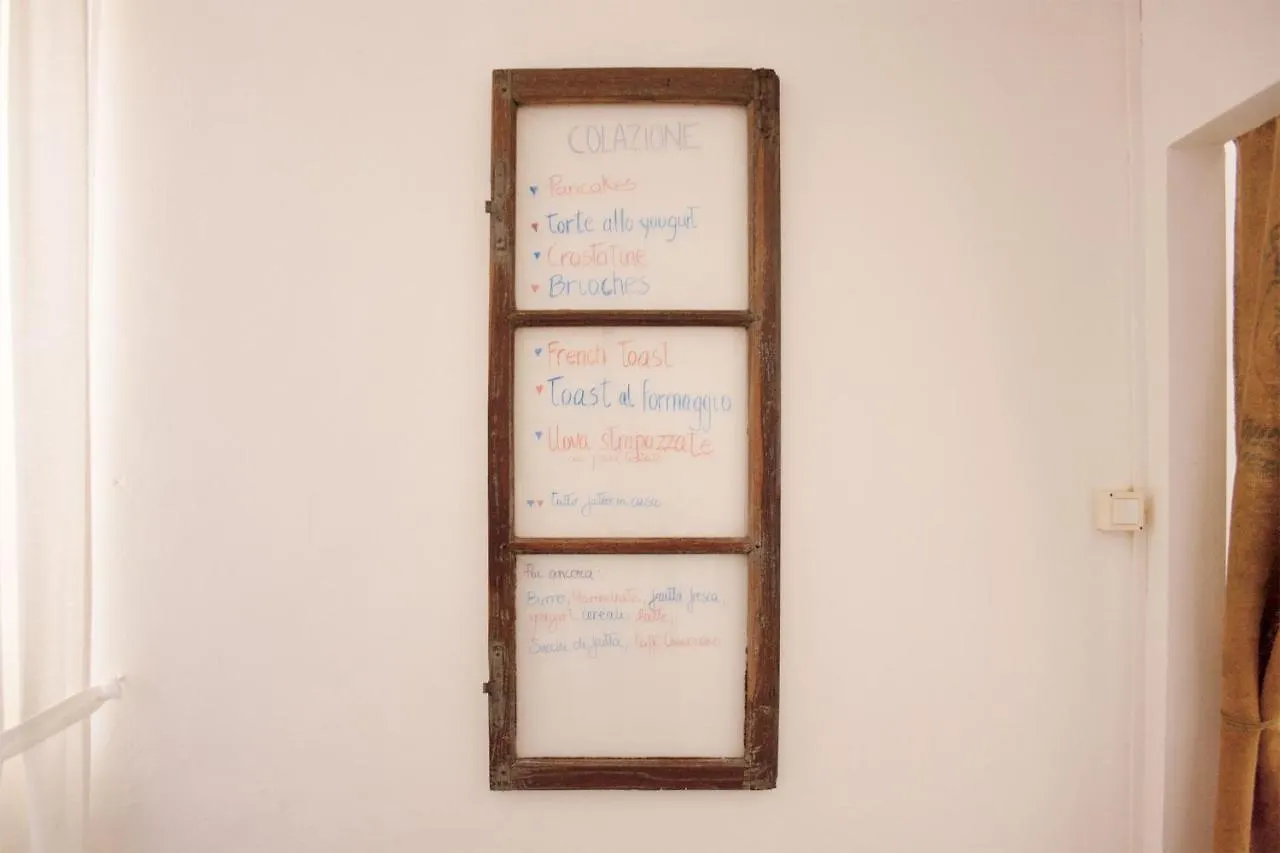 COLAZIONE
Pancakes
Torte allo yougurt
Crostatine
Brioches
French Toast
Toast al formaggio
Uova strapazzate
tutto fatto in casa
Poi ancora:
Burro, Marmellate, frutta fresca,
yogurt cereali latte,
Succhi di frutta, Caffè Americano